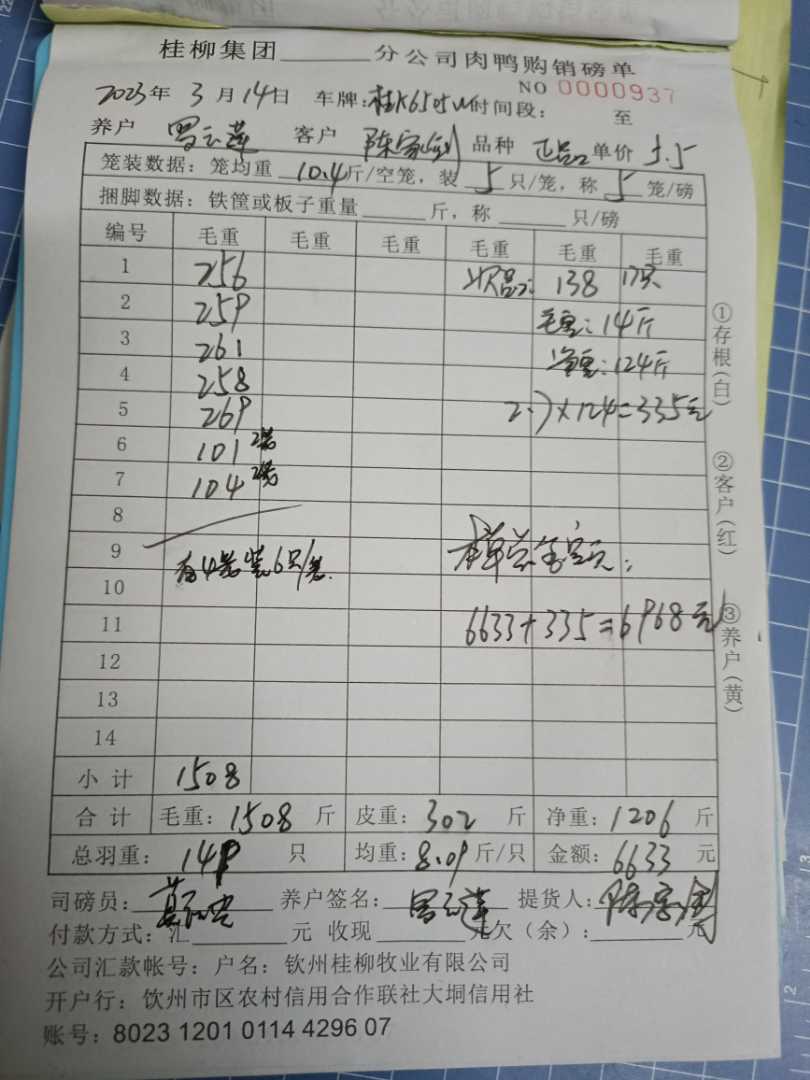 桂柳集团______分公司肉鸭购销磅单
NO 0000937
2023年 3月14日 车牌: 时间段: 至
养户 罗云莲 客户 陈家剑 品种 正品 单价 5.5
笼装数据:笼均重 10.4斤/空笼,装 5 只/笼,称 5 笼/磅
捆脚数据:铁筐或板子重量______斤,称______只/磅
编号 毛重 毛重 毛重 毛重 毛重 毛重
1 256 次品: 138 17只
2 259 毛重:14斤
3 261 净重:124斤
4 258
5 269 2.7×124=335元
6 101 2笼
7 104 2笼
8
9 有4笼装6只/笼. 本单总金额:
10
11 6633+335=6968元
12
13
14
小计 1508
合计 毛重:1508斤 皮重:302斤 净重:1206斤
总羽重:149只 均重:8.09斤/只 金额:6633元
司磅员: 养户签名:罗云莲 提货人:陈家剑
付款方式:汇______元 收现______元欠(余):______元
公司汇款帐号:户名:钦州桂柳牧业有限公司
开户行:饮州市区农村信用合作联社大垌信用社
账号:8023 1201 0114 4296 07
①存根(白)
②客户(红)
③养户(黄)